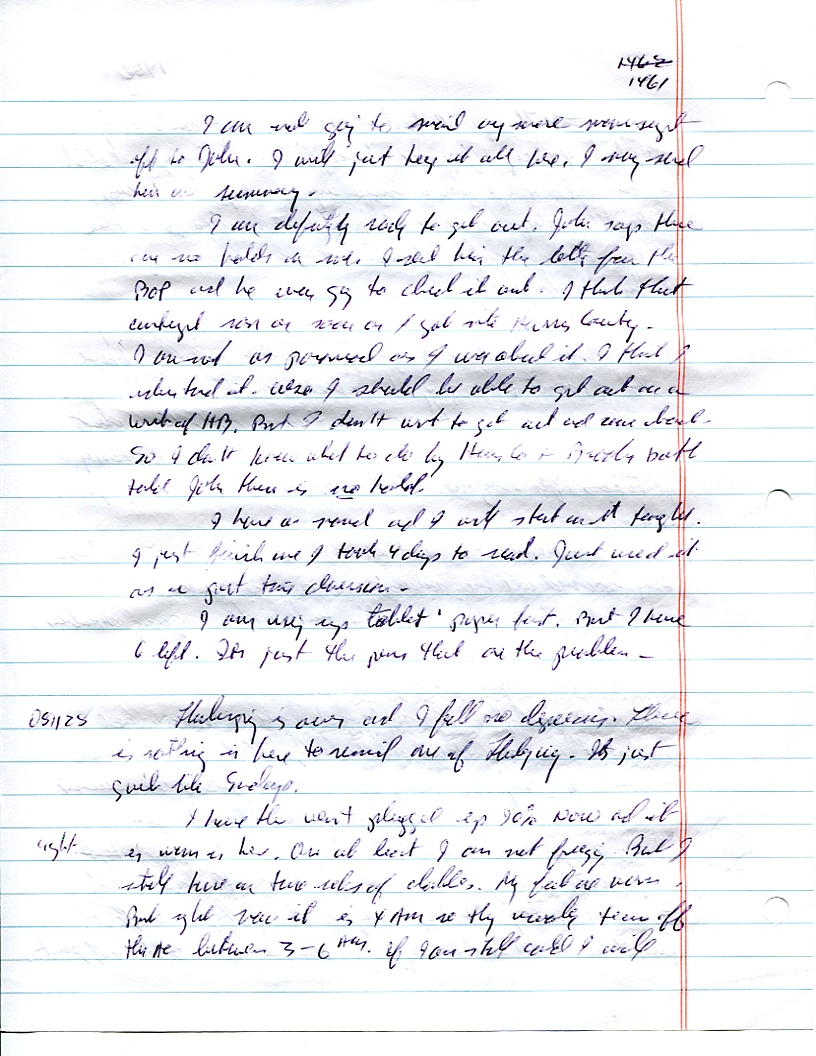 1462
1461
I am not going to send any more manuscript
off to John. I will just keep it all here. I may send
him a summary.
I am definitely ready to get out. John says there
are no holds on me. I sent him the letter from the
BOP and he was going to check it out. I think that
as soon as I got into Harris County.
I am not as as I was about it. I think I
understand it. I should be able to get out on a
writ of HB. But I don't want to get out and come back.
So I don't know what to do. Harris Co + both
told John there is no hold.
I have a novel and I will start on it tonight.
I just finish one I took 4 days to read. Just used it
as a past time diversion.
I am using up tablet paper fast. But I have
6 left. It's just the pens that are the problem -
051125
Thanksgiving is over and I felt no difference. There
is nothing in here to remind one of Thanksgiving. It's just
quiet like Sundays.
I have the vent plugged up 90% now and it
night
is warm in here. Or at least I am not freezing. But I
still have on two sets of clothes. My feet are warm.
But right now it is 4 AM so they usually turn off
the AC between 3-6 AM. If I am still cold I will